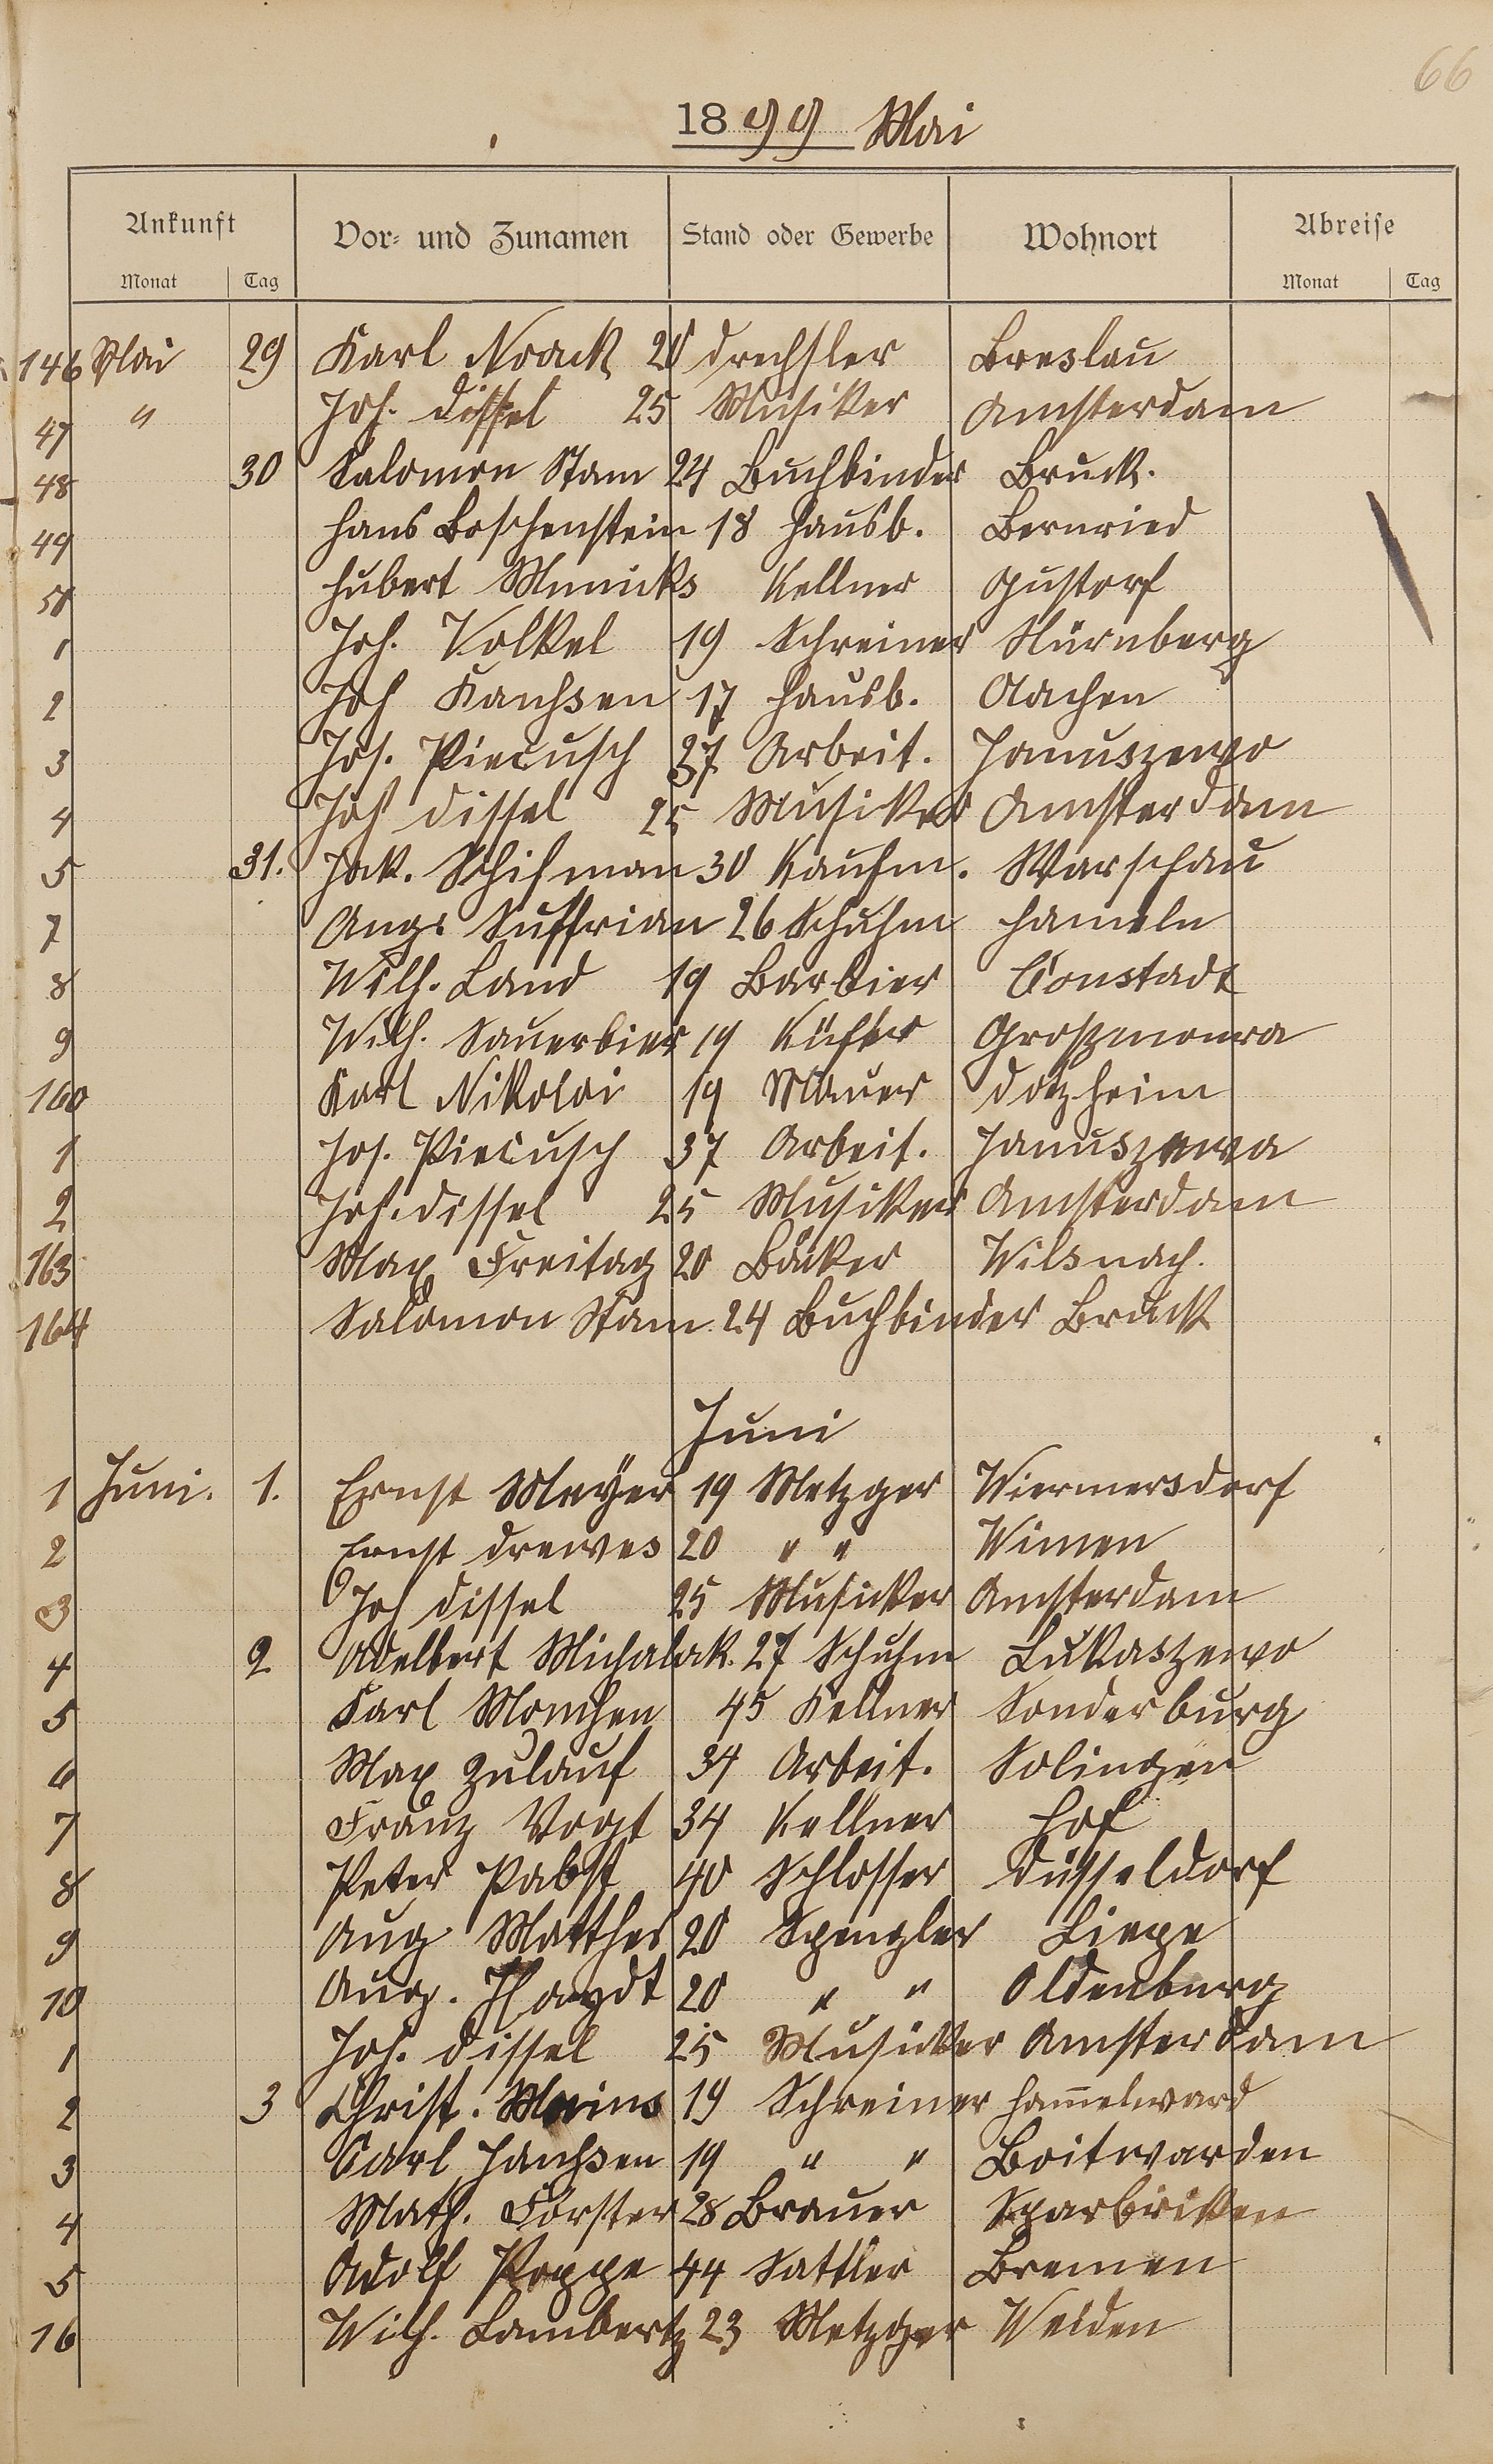 66
1899 Mai
Ankunft Vor- und Zunamen Stand oder Gewerbe Wohnort Abreise
Monat Tag Monat Tag
146 Mai 29 Karl Noack 20 Drechsler Breslau
47 " Joh. Dissel 25 Musiker Amsterdam
48 30 Salomon Stam 24 Buchbinder Bruck.
49 Hans Boschenstein 18 Hausb. Bernried
50 Hubert Kellner Gustorf
1 Joh. Volkel 19 Schreiner Nürnberg
2 Joh Hausb. 17 Aachen
3 Jos. Piecusch 37 Arbeit. Januszewo
4 Joh Dissel 25 Musiker Amsterdam
5 31. Jak. Schifman 30 Kaufm. Warschau
7 Aug. Suffrian 26 Schuhm Hameln
8 Wilh. Land 19 Barbier Constadt
9 Wilh. Sauerbier 19 Küfer Grossmonra
160 Karl Nikolai 19 Maurer Dotzheim
1 Jos. Piecusch 37 Arbeit. Januszewa
2 Joh. Dissel 25 Musiker Amsterdam
163 Max Freitag 20 Bäcker Wilsnach.
164 Salomon Stam 24 Buchbinder Bruck
Juni
1 Juni. 1. Ernst Meyer 19 Metzger Wiemersdorf
2 Ernst Drewes 20 " " Winsen
3 Joh Dissel 25 Musicker Amsterdam
4 2 Adelbert Michalak. 27 Schuhm Lukaszewo
5 Karl Monchen 45 Kellner Sonderburg
6 Max Zulauf 34 Arbeit. Solingen
7 Franz Vogt 34 Kellner Hof
8 Peter Pabst 40 Schlosser Düsseldorf
9 Aug Matthes 20 Spengler Liepe
10 Aug. Haydt 20 " " Oldenburg
1 Joh. Dissel 25 Musicker Amsterdam
2 3 Christ. Meins 19 Schreiner Ham̄elward
3 Carl Janssen 19 " " Boitwarden
4 Math. Forster 28 Brauer
5 Adolf Poppe 44 Sattler Bremen
16 Wilh. Lambertz 23 Metzger Weiden